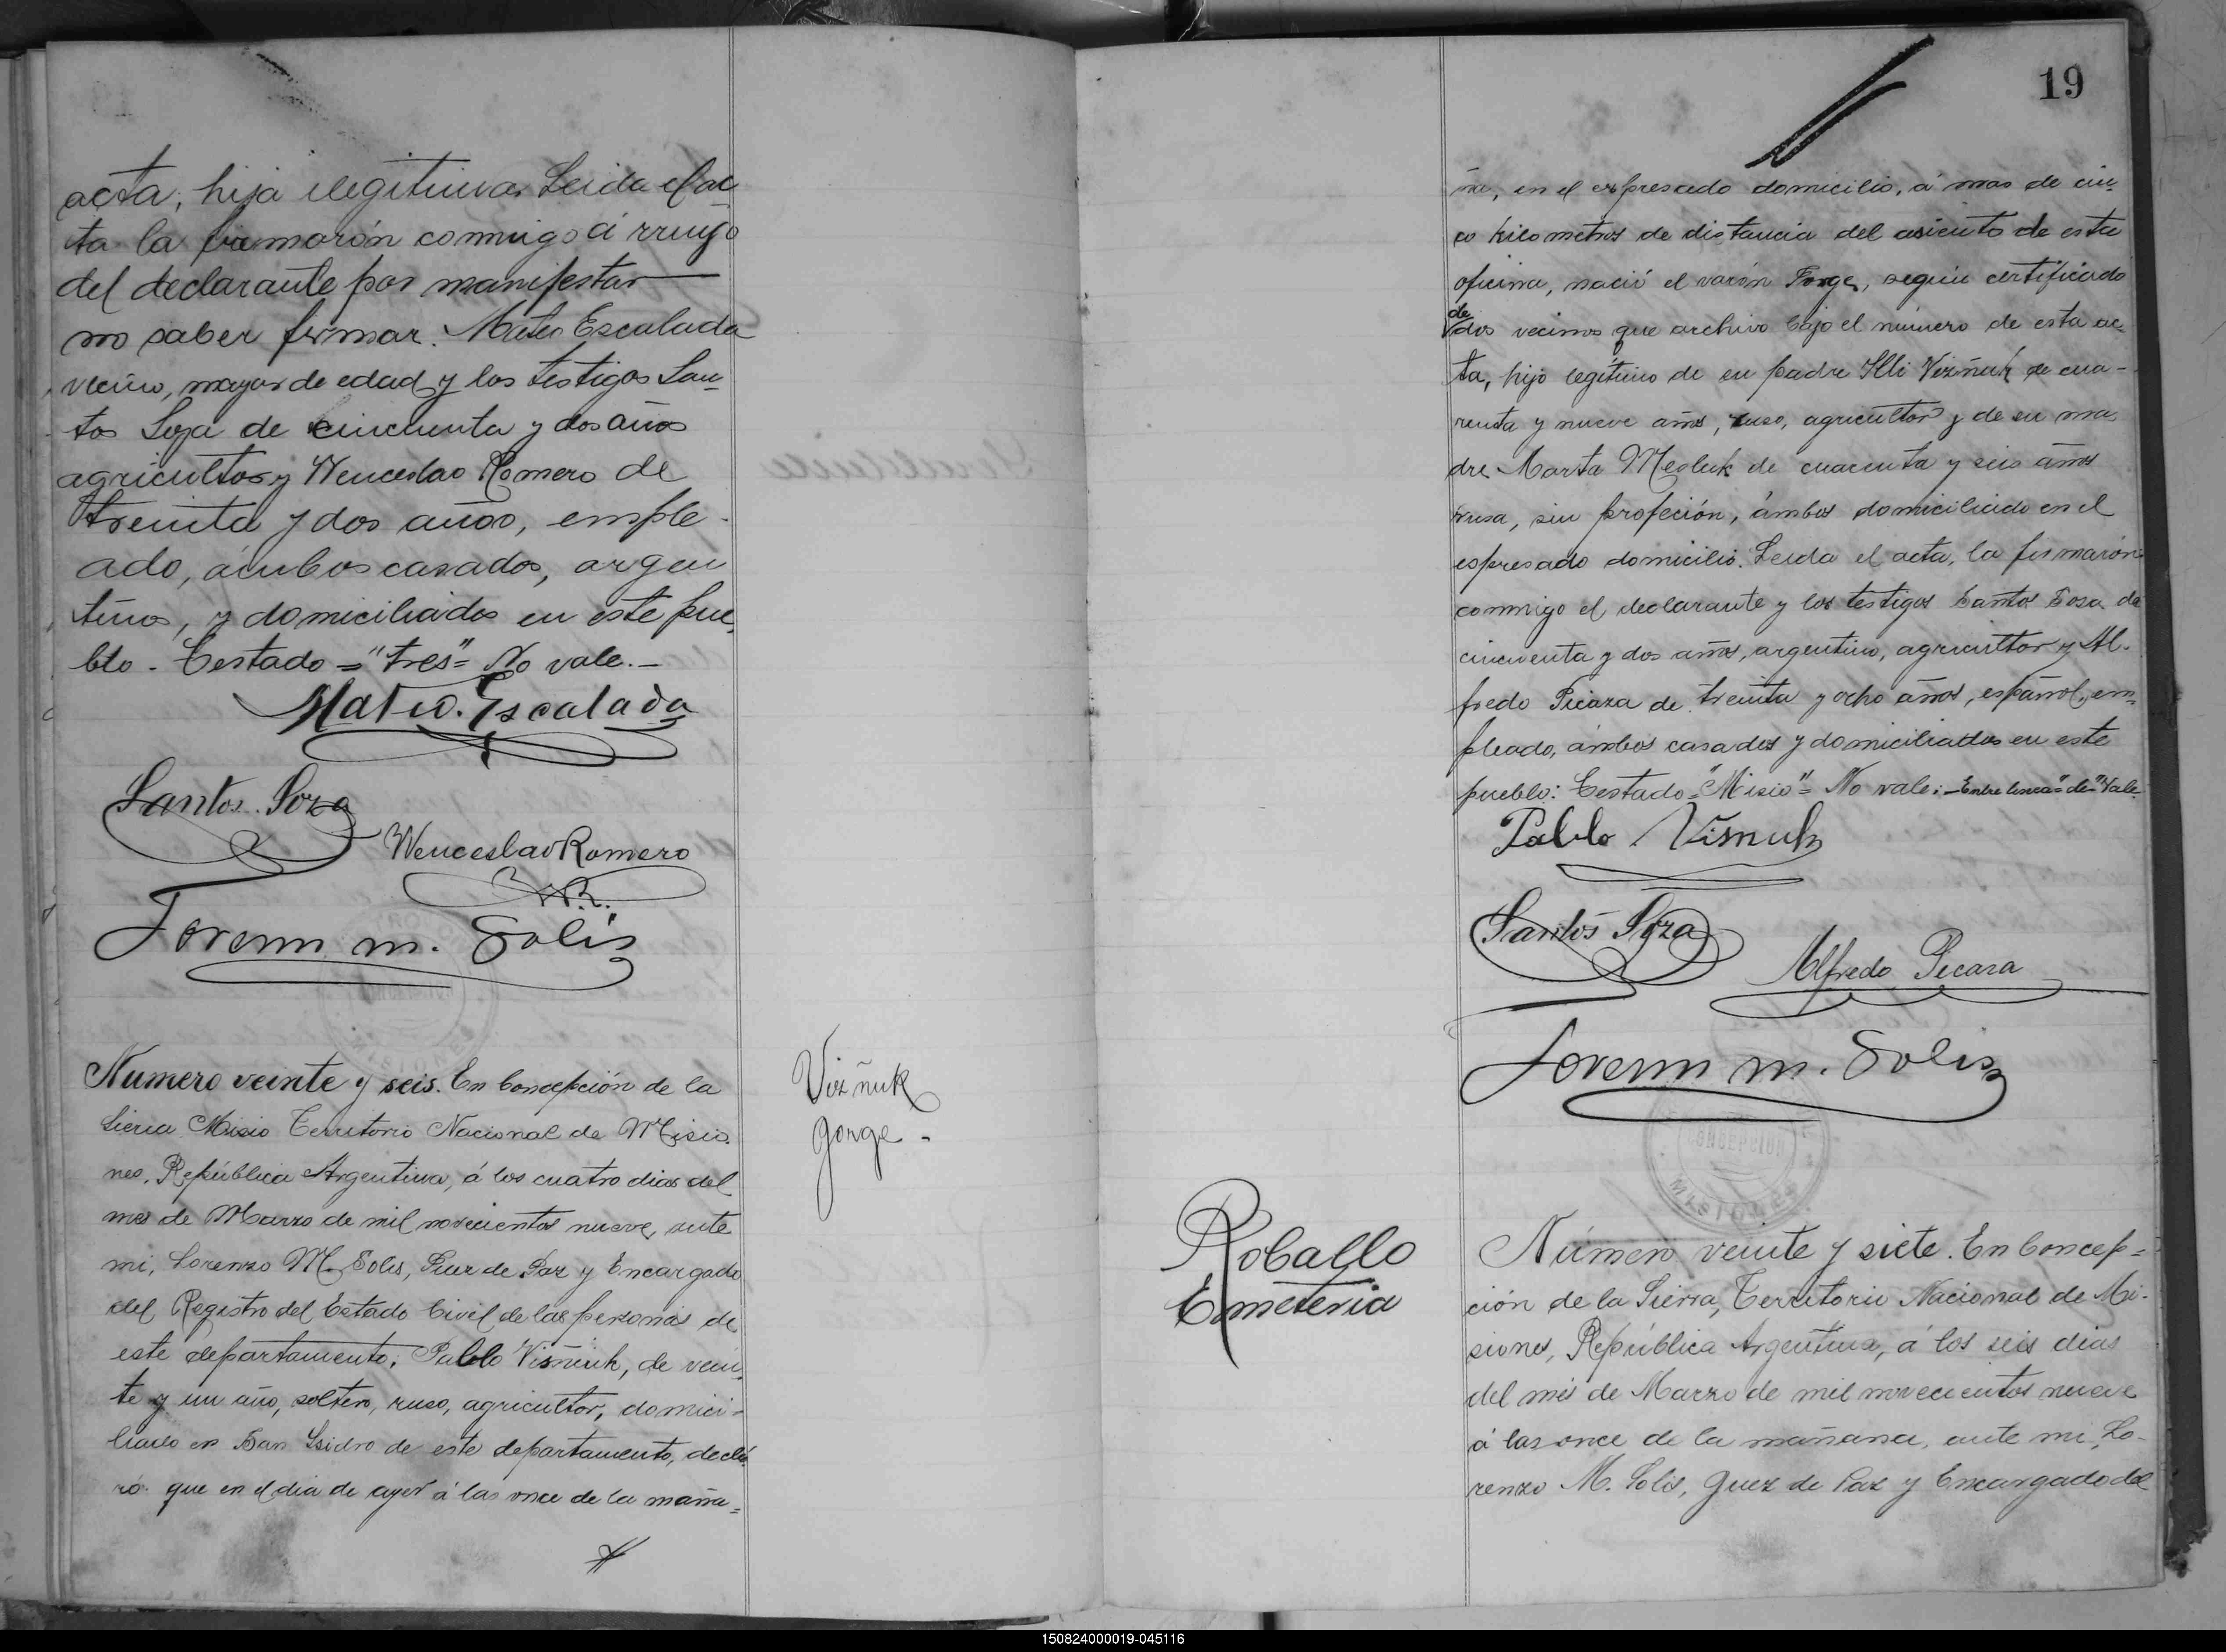 acta, hija ilegitima. Leida el ac
ta la firmarón conmigo á rruego
del declarante por manifestar
no saber firmar. Mateo Escalada
vecino, mayor de edad y los testigos San
tos Soza de cincuenta y dos años
agricultor y Wenceslao Romero de
treinta y dos años, emple-
ado, ámbos casados, argen
tinos, y domiciliados en este pue
blo. Testado = "tres" = No vale. -
Mateo. Escalada
Santos. Soza
Wenceslao Romero
W.R.
Lorenzo M. Solis
Numero veinte y seis. En Concepción de la
Sierra Misio Territorio Nacional de Misio
nes, República Argentina, á los cuatro dias del
mes de Marzo de mil novecientos nueve, ante
mi, Lorenzo M. Solis, Juez de Paz y Encargado
del Registro del Estado Civil de las personas de
este departamento; Pablo Visñiuk, de vein
te y un año, soltero, ruso, agricultor, domici-
liado en San Isidro de este departamento, decla
ró: que en el dia de ayer á las once de la maña=
Vizñuk
Jorge -
19
na, en el expresado domicilio, á mas de cin
co kilometros de distancia del asiento de esta
oficina, nació el varón Jorge, según certificado
de
dos vecinos que archivo bajo el número de esta ac
ta, hijo legítimo de su padre Illi Vizñuk de cua-
renta y nueve años, ruso, agricultor y de su ma
dre Marta Mesluk de cuarenta y seis años
rusa, sin profeción, ámbos domiciliado en el
espresado domicilio. Leida el acta, la firmarón
conmigo el declarante y los testigos Santos Soza de
cincuenta y dos años, argentino, agricultor y Al-
fredo Picaza de treinta y ocho años, español, em=
pleado, ámbos casados y domiciliados en este
pueblo: Testado = "Misio" = No vale: - Entre linea "de" Vale.
Pablo Visnuk
Santos Soza
Alfredo Picaza
Lorenzo M. Solis
CONCEPCION
MISIONES
Roballo
Emeteria
Número veinte y siete. En Concep=
ción de la Sierra, Territorio Nacional de Mi-
siones, República Argentina, á los seis dias
del més de Marzo de mil novecientos nueve
á las once de la mañana, ante mi, Lo-
renzo M. Solis, Juez de Paz y Encargado del
150824000019-045116